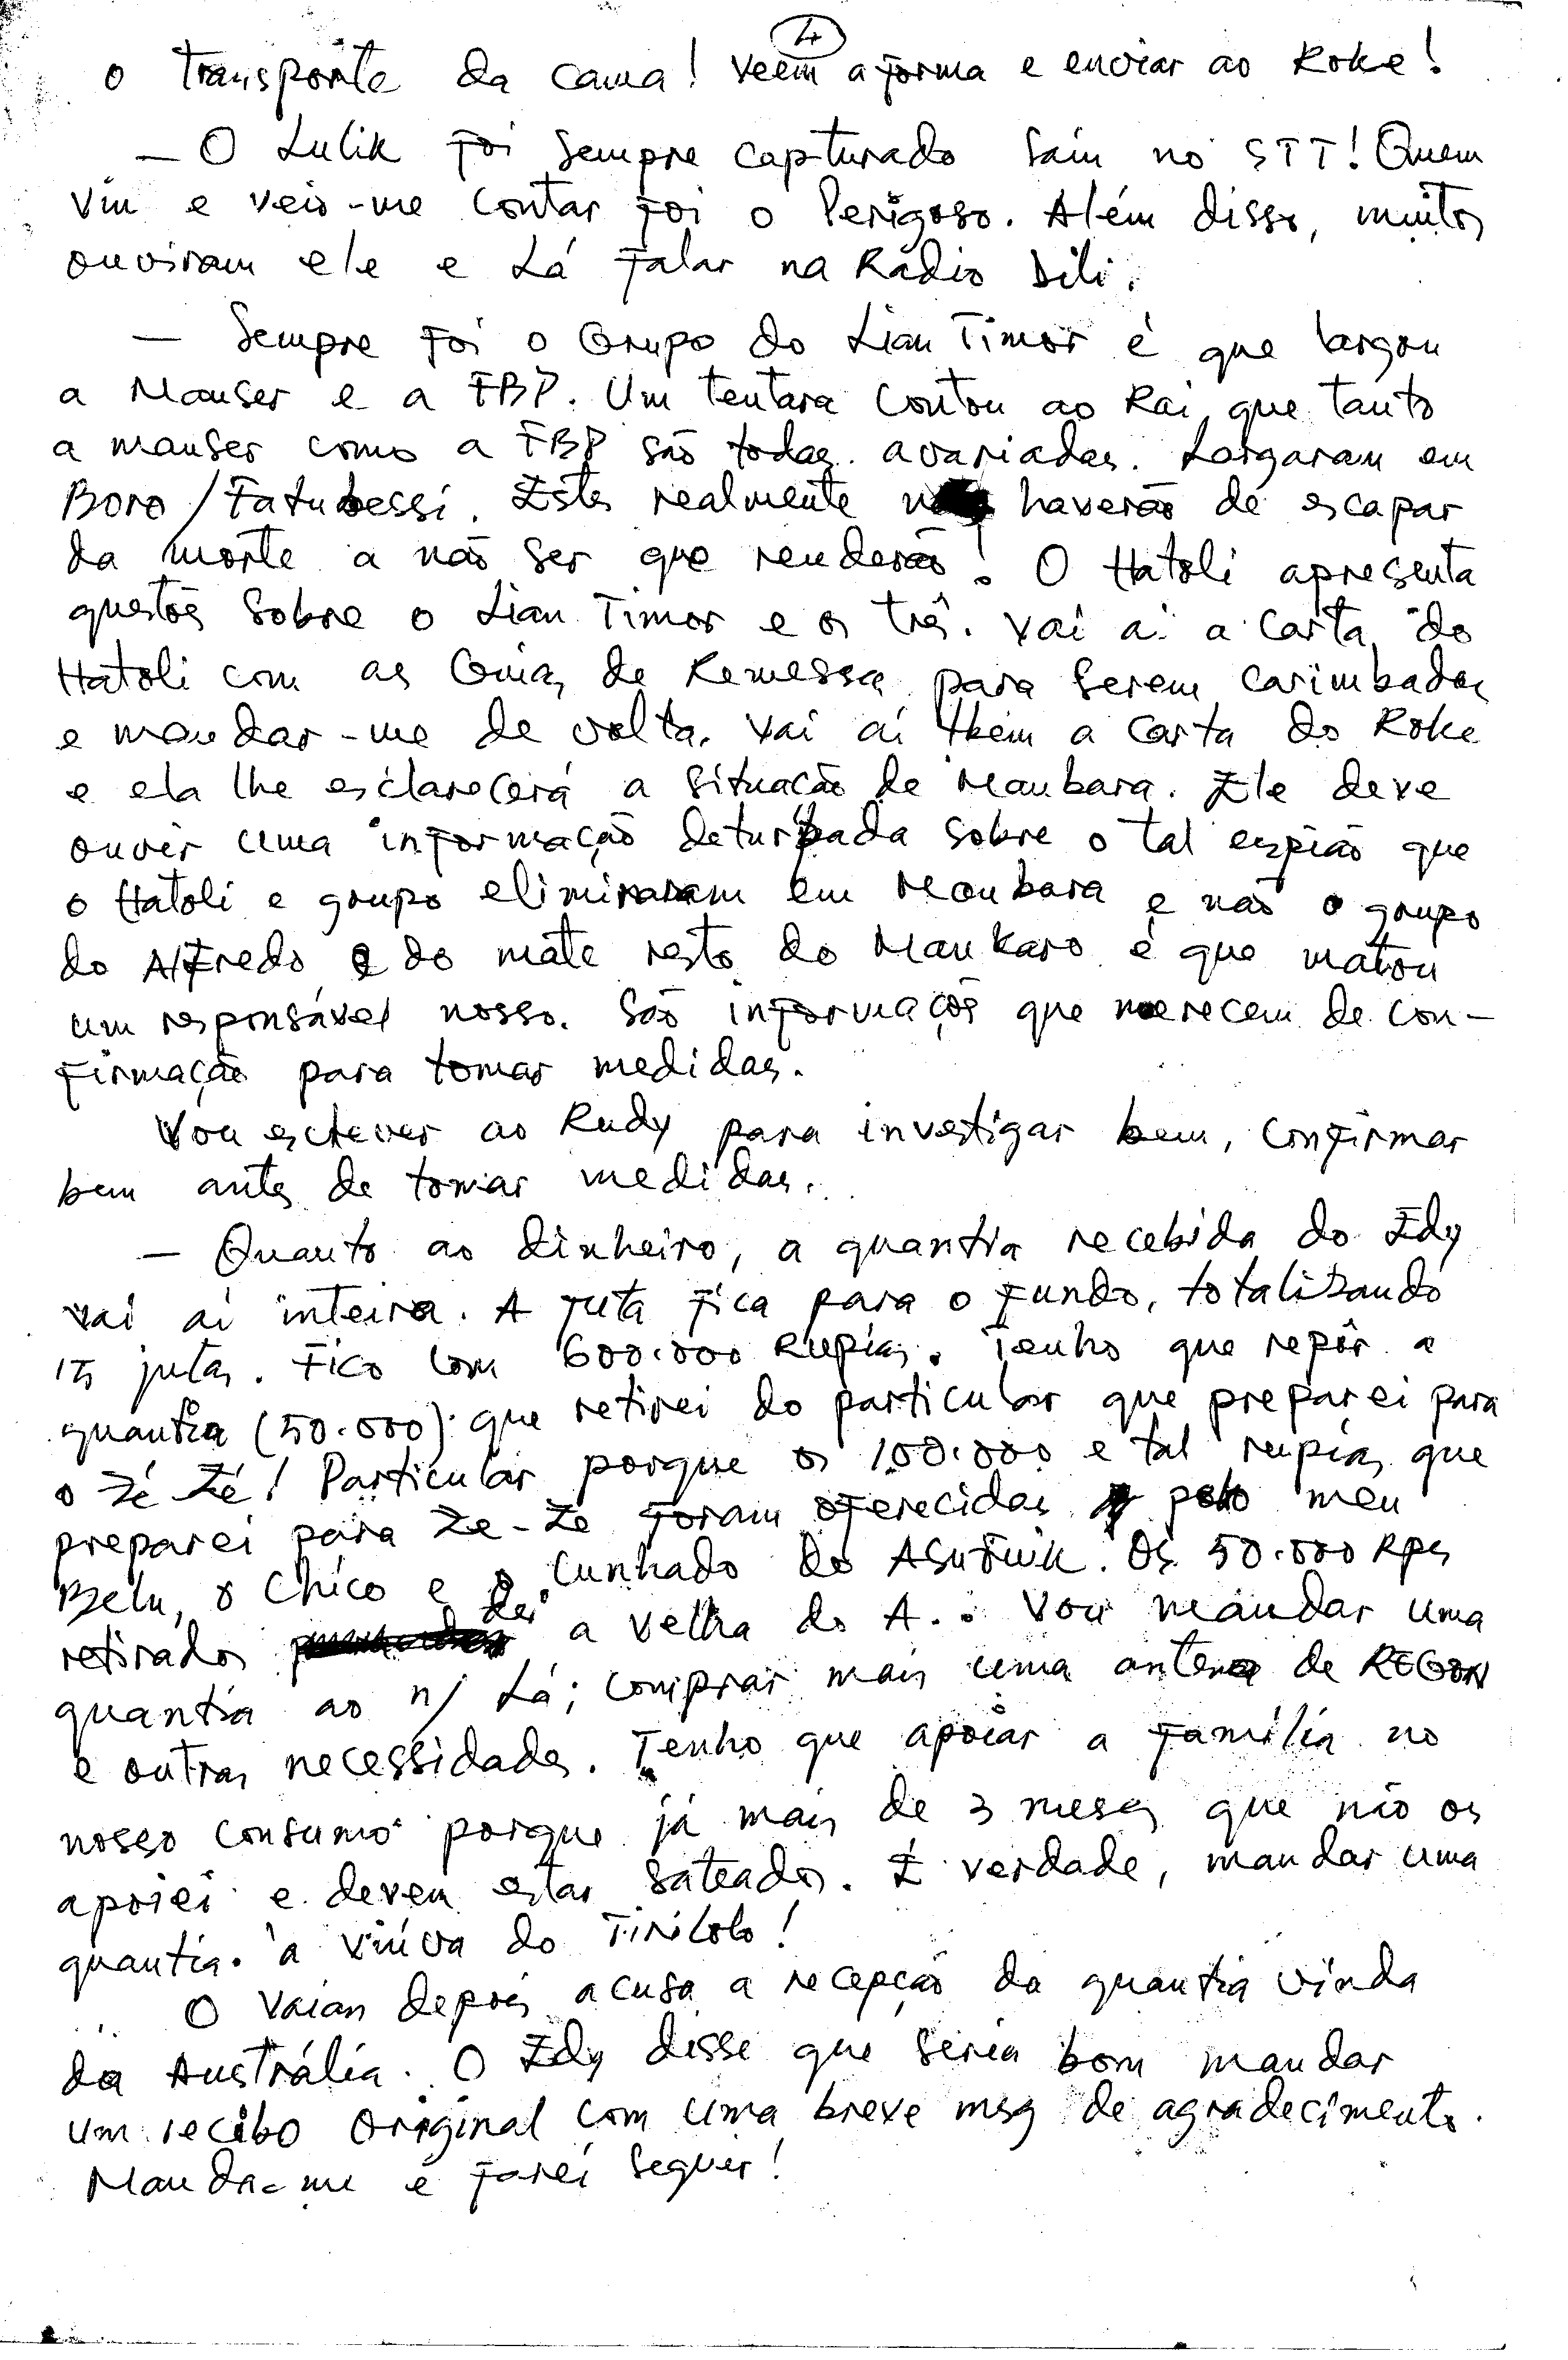 4
o transporte da cama! Veem a forma e enviar ao Roke!
— O Lulik foi sempre capturado saiu no STT! Quem
viu e veio-me contar foi o Perigoso. Além disso, muitos
ouviram ele e Lá falar na Rádio Dili.
— Sempre foi o Grupo do Lian Timor é que largou
a Mauser e a FBP. Um tentara contou ao Rai, que tanto
a mauser como a FBP são todas avariadas. Largaram em
Boro/Fatubessi. Estes realmente haverão de escapar
da morte a não ser que renderão! O Hatoli apresenta
questões sobre o Lian Timor e os três. Vai aí a carta do
Hatoli com as Guias de Remessa para serem carimbadas
e mandar-me de volta. Vai aí tbém a carta do Roke
e ela lhe esclarecerá a situação de Maubara. Ele deve
ouvir uma informação deturpada sobre o tal espião que
o Hatoli e grupo eliminaram em Maubara e não o grupo
do Alfredo e do mate resto do Maukaro é que matou
um responsável nosso. São informações que merecem de con-
firmação para tomar medidas.
Vou escrever ao Rudy para investigar bem, confirmar
bem antes de tomar medidas.
— Quanto ao dinheiro, a quantia recebida do Edy
vai aí inteira. A juta fica para o fundo, totalizando
15 jutas. Fico com 600.000 Rupias. Tenho que repôr a
quantia (50.000) que retirei do particular que preparei para
o Zé-Zé! Particular porque os 100.000 e tal rupias que
preparei para Ze-Ze foram oferecidas pelo meu
Belu, o Chico e o cunhado do Asufuik. Os 50.000 Rps
retirados dei a velha do A.. Vou mandar uma
quantia ao n/ Lá; comprar mais uma antena de REGON
e outras necessidades. Tenho que apoiar a família no
nosso consumo porque já mais de 3 meses que não os
apoiei e devem estar sateados. É verdade, mandar uma
quantia à viúva do Tirilolo!
O Vaian depois acusa a recepção da quantia vinda
da Austrália. O Edy disse que seria bom mandar
um recibo original com uma breve msg de agradecimento.
Manda-me e farei seguir!